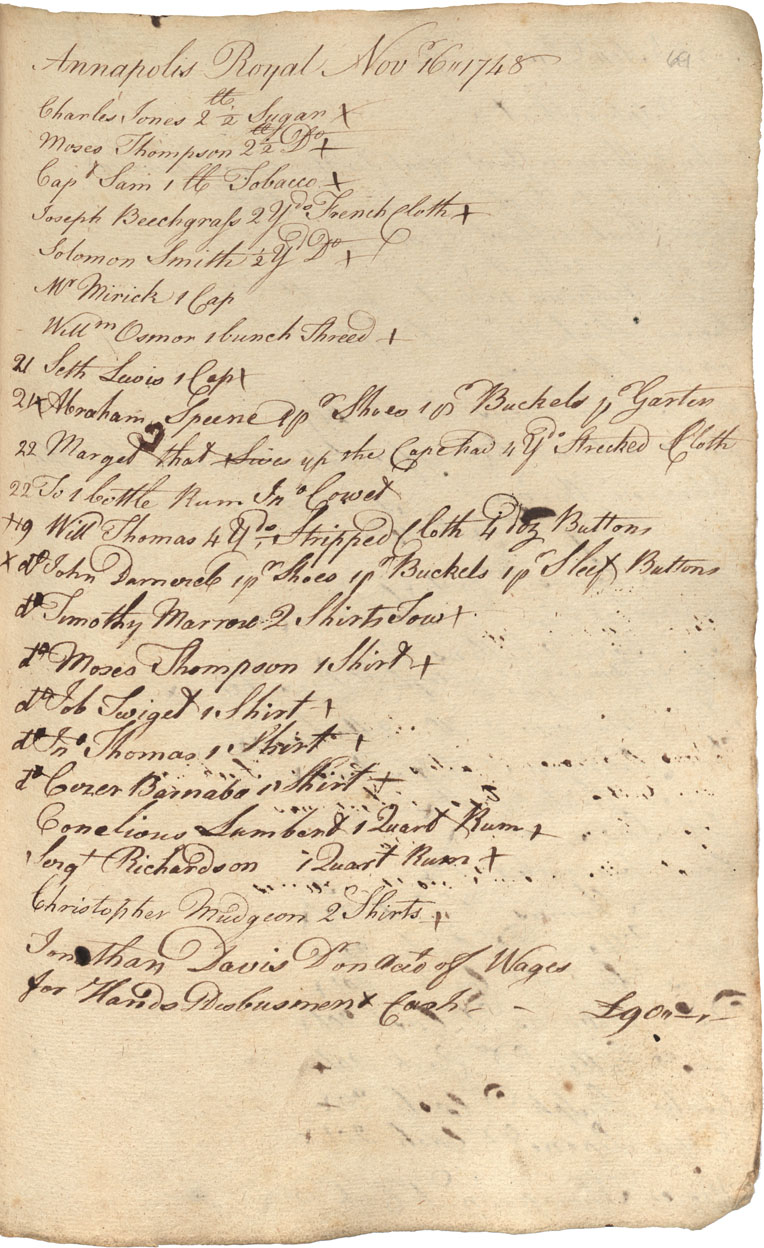 69
Annapolis Royal Novr 16 1748
Charles Jones 2 ½ lb Sugar X
Moses Thompson 2 ½ lb Do X
Capt Sam 1 lb Tobacco X
Joseph Beechgrass 2 Yds French Cloth X
Solomon Smith ½ Yd Do X
Mr Mirick 1 Cap
Willm Osmor 1 bunch Threed X
21 Seth Lewis 1 Cap X
21 X Abraham Speene 1 pr Shoes 1 pr Buckels 1 pr Garters
22 Marget that Lives up the Cape had 4 Yds Strecked Cloth
22 To 1 bottle Rum Jno Cowet
X 19 Will Thomas 4 Yds Stripped Cloth 4 doz Buttons
X do John 1 pr Shoes 1 pr Buckels 1 pr Sleef Buttons
do Timothy Marrow 2 Shirts Tow X
do Moses Thompson 1 Shirt X
do Job Twiget 1 Shirt X
do Jno Thomas 1 Shirt X
do Cezer Barnabe 1 Shirt X
Conelious Lumbert 1 Quart Rum X
Sergt Richardson 1 Quart Rum X
Christopher Mudgeon 2 Shirts X
Jonathan Davis Dr on Acct of Wages
for Hands Disbusment Cash - - £90 " - " -